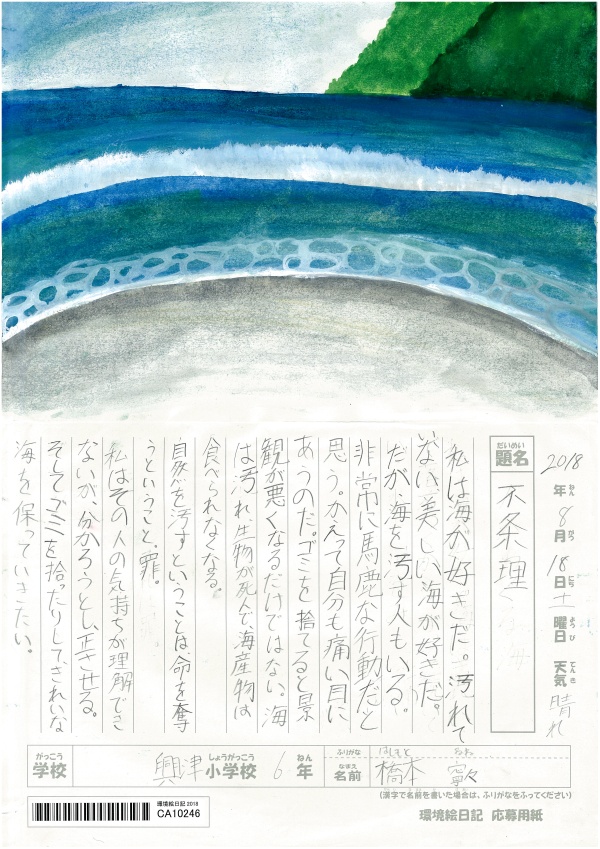 2018年8月18日土曜日 天気 晴れ
ねん がつ にち ようび てんき
だいめい
題名 不条理
私は海が好きだ。汚れて
いない美しい海が好きだ。
だが、海を汚す人もいる。
非常に馬鹿な行動だと
思う。かえって自分も痛い目に
あうのだ。ゴミを捨てると景
観が悪くなるだけではない。海
は汚れ生物が死んで、海産物は
食べられなくなる。
自然を汚すということは命を奪
うということ、罪。
私はその人の気持ちが理解でき
ないが、分かろうとし、正させる。
そしてゴミを拾ったりして、きれいな
海を保っていきたい。
がっこう しょうがっこう ねん
学校 興津小学校 6年
ふりがな はしもと
なまえ
名前 橋本 寧々
(漢字で名前を書いた場合は、ふりがなをふってください)
環境絵日記 2018
CA10246
環境絵日記 応募用紙